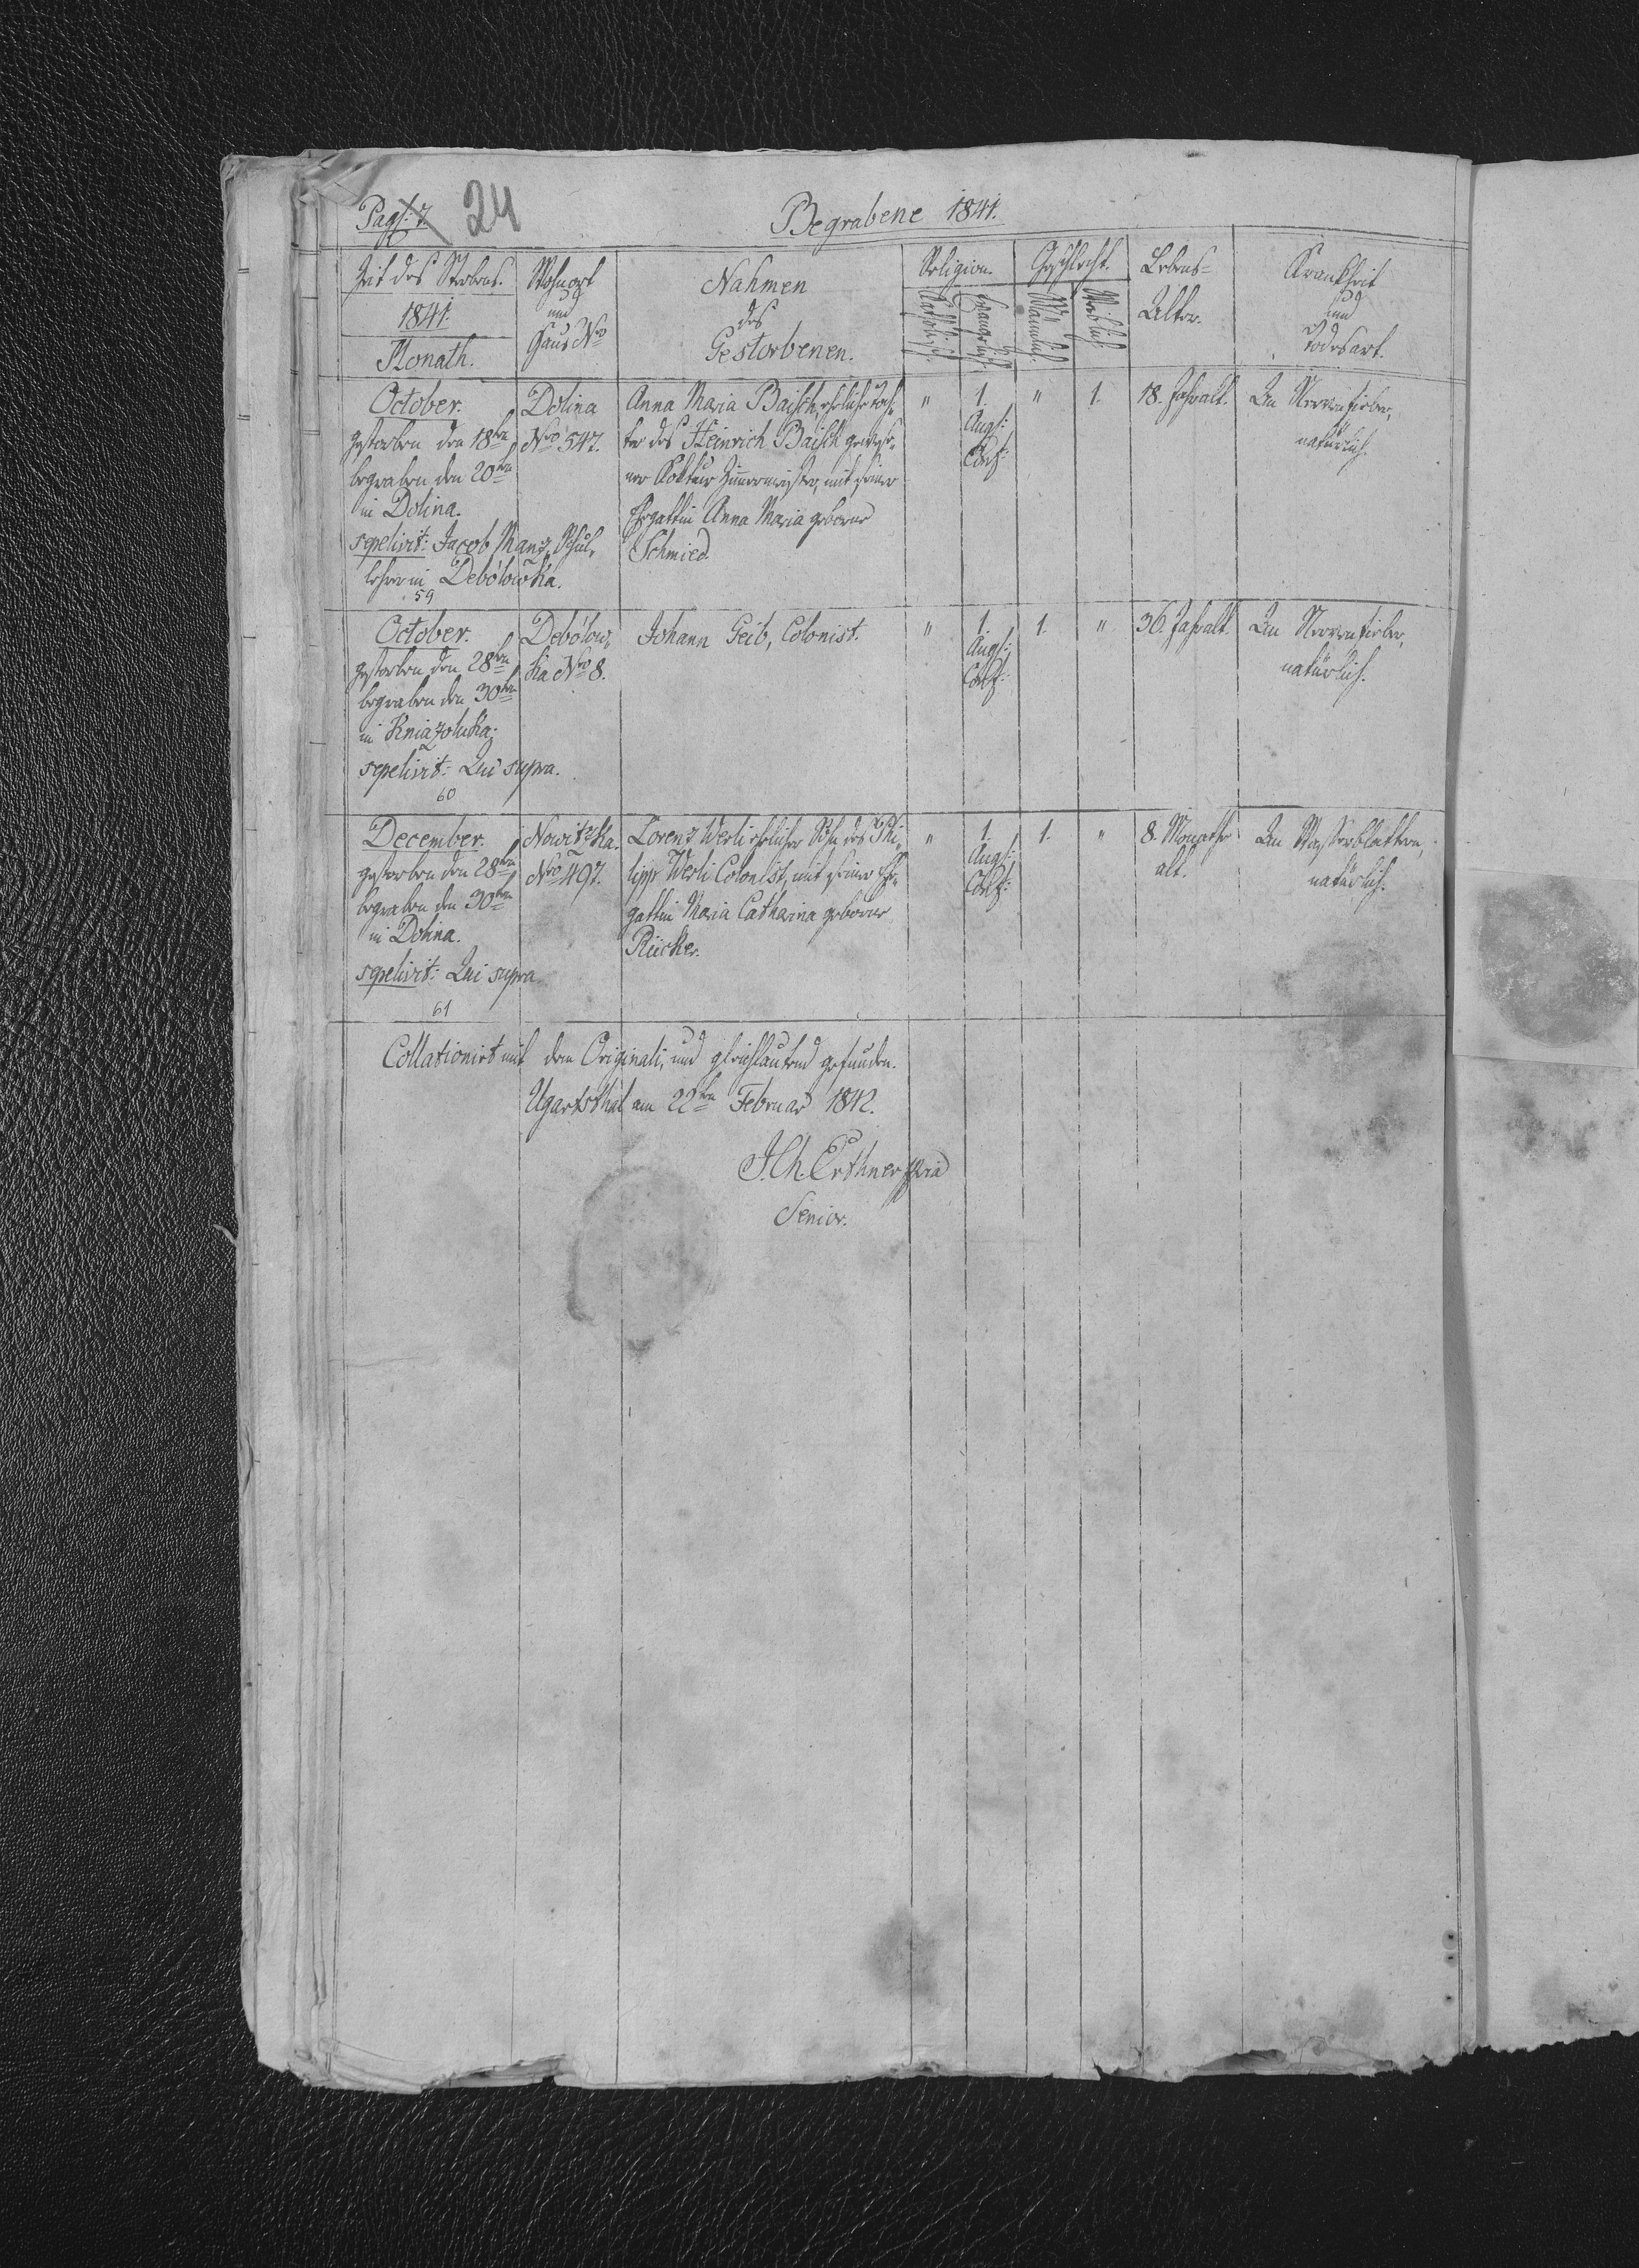 Pag: 7. 24
Begrabene 1841.
Zeit des Sterbens.
1841.
Monath.
Wohnort
und
Haus Nro
Nahmen
des
Gestorbenen.
Religion.
Katholisch.
Evangelisch.
Geschlecht.
Männlich.
Weiblich.
Lebens-
Alter.
Krankheit
und
Todesart.
October.
gestorben den 18ten
begraben den 20ten
in Dolina.
sepelivit: Jacob Manz, Schul-
lehrer in Debolowka.
59
Dolina
Nro 547.
Anna Maria Baisch, eheliche Toch-
ter des Heinrich Baisch gewese-
ner Zimmermeister, mit seiner
Ehegattin Anna Maria geborne
Schmied.
" 1. " 1.
Augs:
Conf:
18. Jahr alt.
An Nervenfieber,
natürlich.
October.
gestorben den 28ten
begraben den 30ten
in Kniazoluka;
sepelivit: Qui supra.
60
Debolow-
ka Nro 8.
Johann Geib, Colonist.
" 1. 1. "
Augs:
Conf:
36. Jahr alt.
An Nervenfieber,
natürlich.
December.
gestorben den 28ten
begraben den 30ten
in Dolina.
sepelivit: Qui supra.
61
Nowitzka.
Nro 497.
Lorenz Werli ehelicher Sohn des Phi-
lipp Werli Colonist, mit seiner Ehe-
gattin Maria Catharina geborne
Rücker.
" 1. 1. "
Augs:
Conf:
8. Monathe
alt.
An Wasserblattern,
natürlich.
Collationirt mit dem Originali, und gleichlautend gefunden.
Ugartsthal am 22ten Februar 1842.
J. Ch. Erthner mpria
Senior.